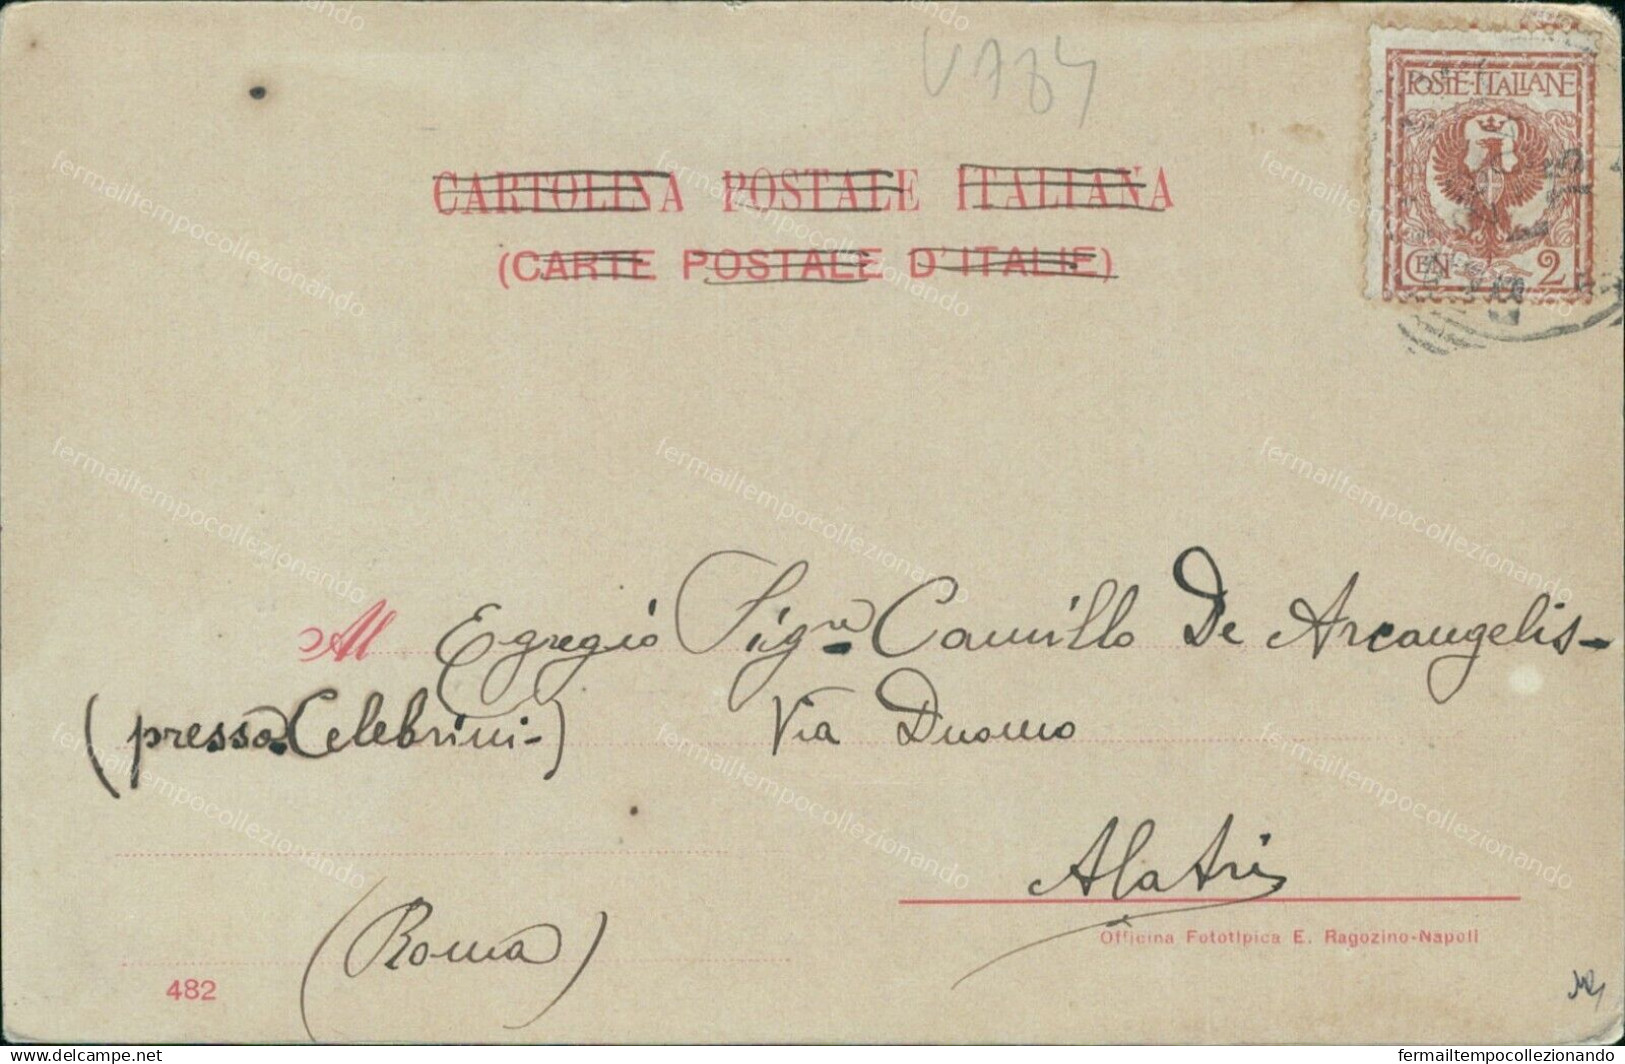 V784
POSTE·ITALIANE
CEN 2
CARTOLINA POSTALE ITALIANA
(CARTE POSTALE D'ITALIE)
Al Egregio Sigre Camillo De Arcangelis-
(presso Celebrini-) Via Duomo
Alatri
(Roma)
Officina Fototipica E. Ragozino-Napoli
482
fermailtempocollezionando
https://www.delcampe.net
fermailtempocollezionando